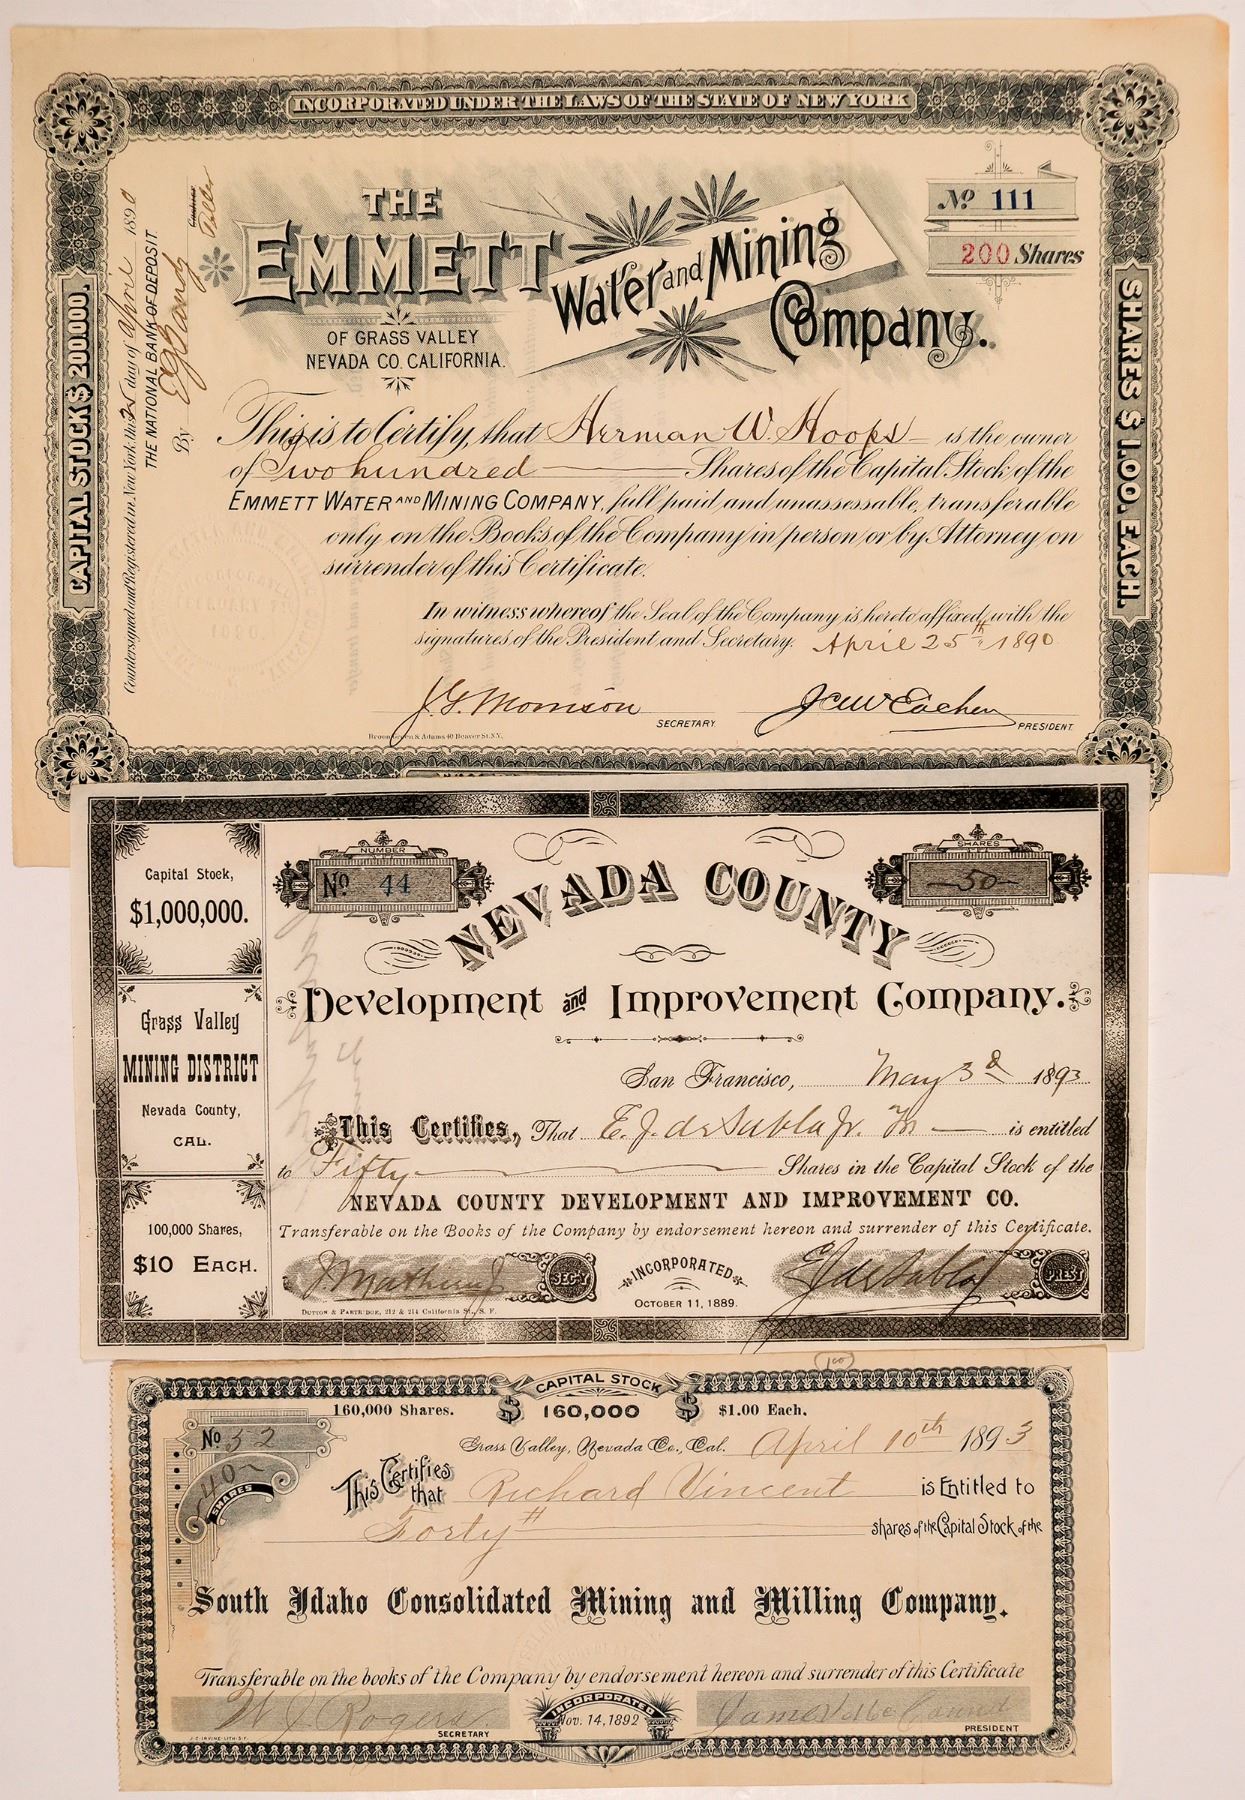 INCORPORATED UNDER THE LAWS OF THE STATE OF NEW YORK
CAPITAL STOCK $200.000.
Countersigned and Registered in New York this 25 day of April 1890
THE NATIONAL BANK OF DEPOSIT.
By
Teller
THE
EMMETT
Water and Mining
Company.
OF GRASS VALLEY
NEVADA CO. CALIFORNIA.
No 111
200 Shares
SHARES $1.00. EACH.
This is to Certify, that Herman W. Hoops is the owner
of Two hundred Shares of the Capital Stock of the
EMMETT WATER AND MINING COMPANY, full paid and unassessable, transferable
only on the Books of the Company in person or by Attorney on
surrender of this Certificate.
In witness whereof the Seal of the Company is hereto affixed, with the
signatures of the President and Secretary. April 25th 1890
J. G. Morrison SECRETARY.
PRESIDENT.
Brown Green & Adams 40 Beaver St. N.Y.
Capital Stock,
$1,000,000.
Grass Valley
MINING DISTRICT
Nevada County,
CAL.
100,000 Shares,
$10 EACH.
NUMBER
No 44
SHARES
50
NEVADA COUNTY
Development and Improvement Company.
San Francisco, May 3d 1893
This Certifies, That E. J. de Sabla Jr. Tr is entitled
to Fifty Shares in the Capital Stock of the
NEVADA COUNTY DEVELOPMENT AND IMPROVEMENT CO.
Transferable on the Books of the Company by endorsement hereon and surrender of this Certificate.
SEC'Y
INCORPORATED
OCTOBER 11, 1889.
E J de Sabla Jr PREST
DUTTON & PARTRIDGE, 212 & 214 California St., S. F.
100
CAPITAL STOCK
160,000 Shares. $ 160,000 $ $1.00 Each.
No 52
40
SHARES
Grass Valley, Nevada Co., Cal. April 10th 1893
This Certifies
that Richard Vincent is Entitled to
Forty shares of the Capital Stock of the
South Idaho Consolidated Mining and Milling Company.
Transferable on the books of the Company by endorsement hereon and surrender of this Certificate
W. J. Rogers SECRETARY
INCORPORATED
Nov. 14, 1892
PRESIDENT
J. C. IRVINE LITH. S. F.